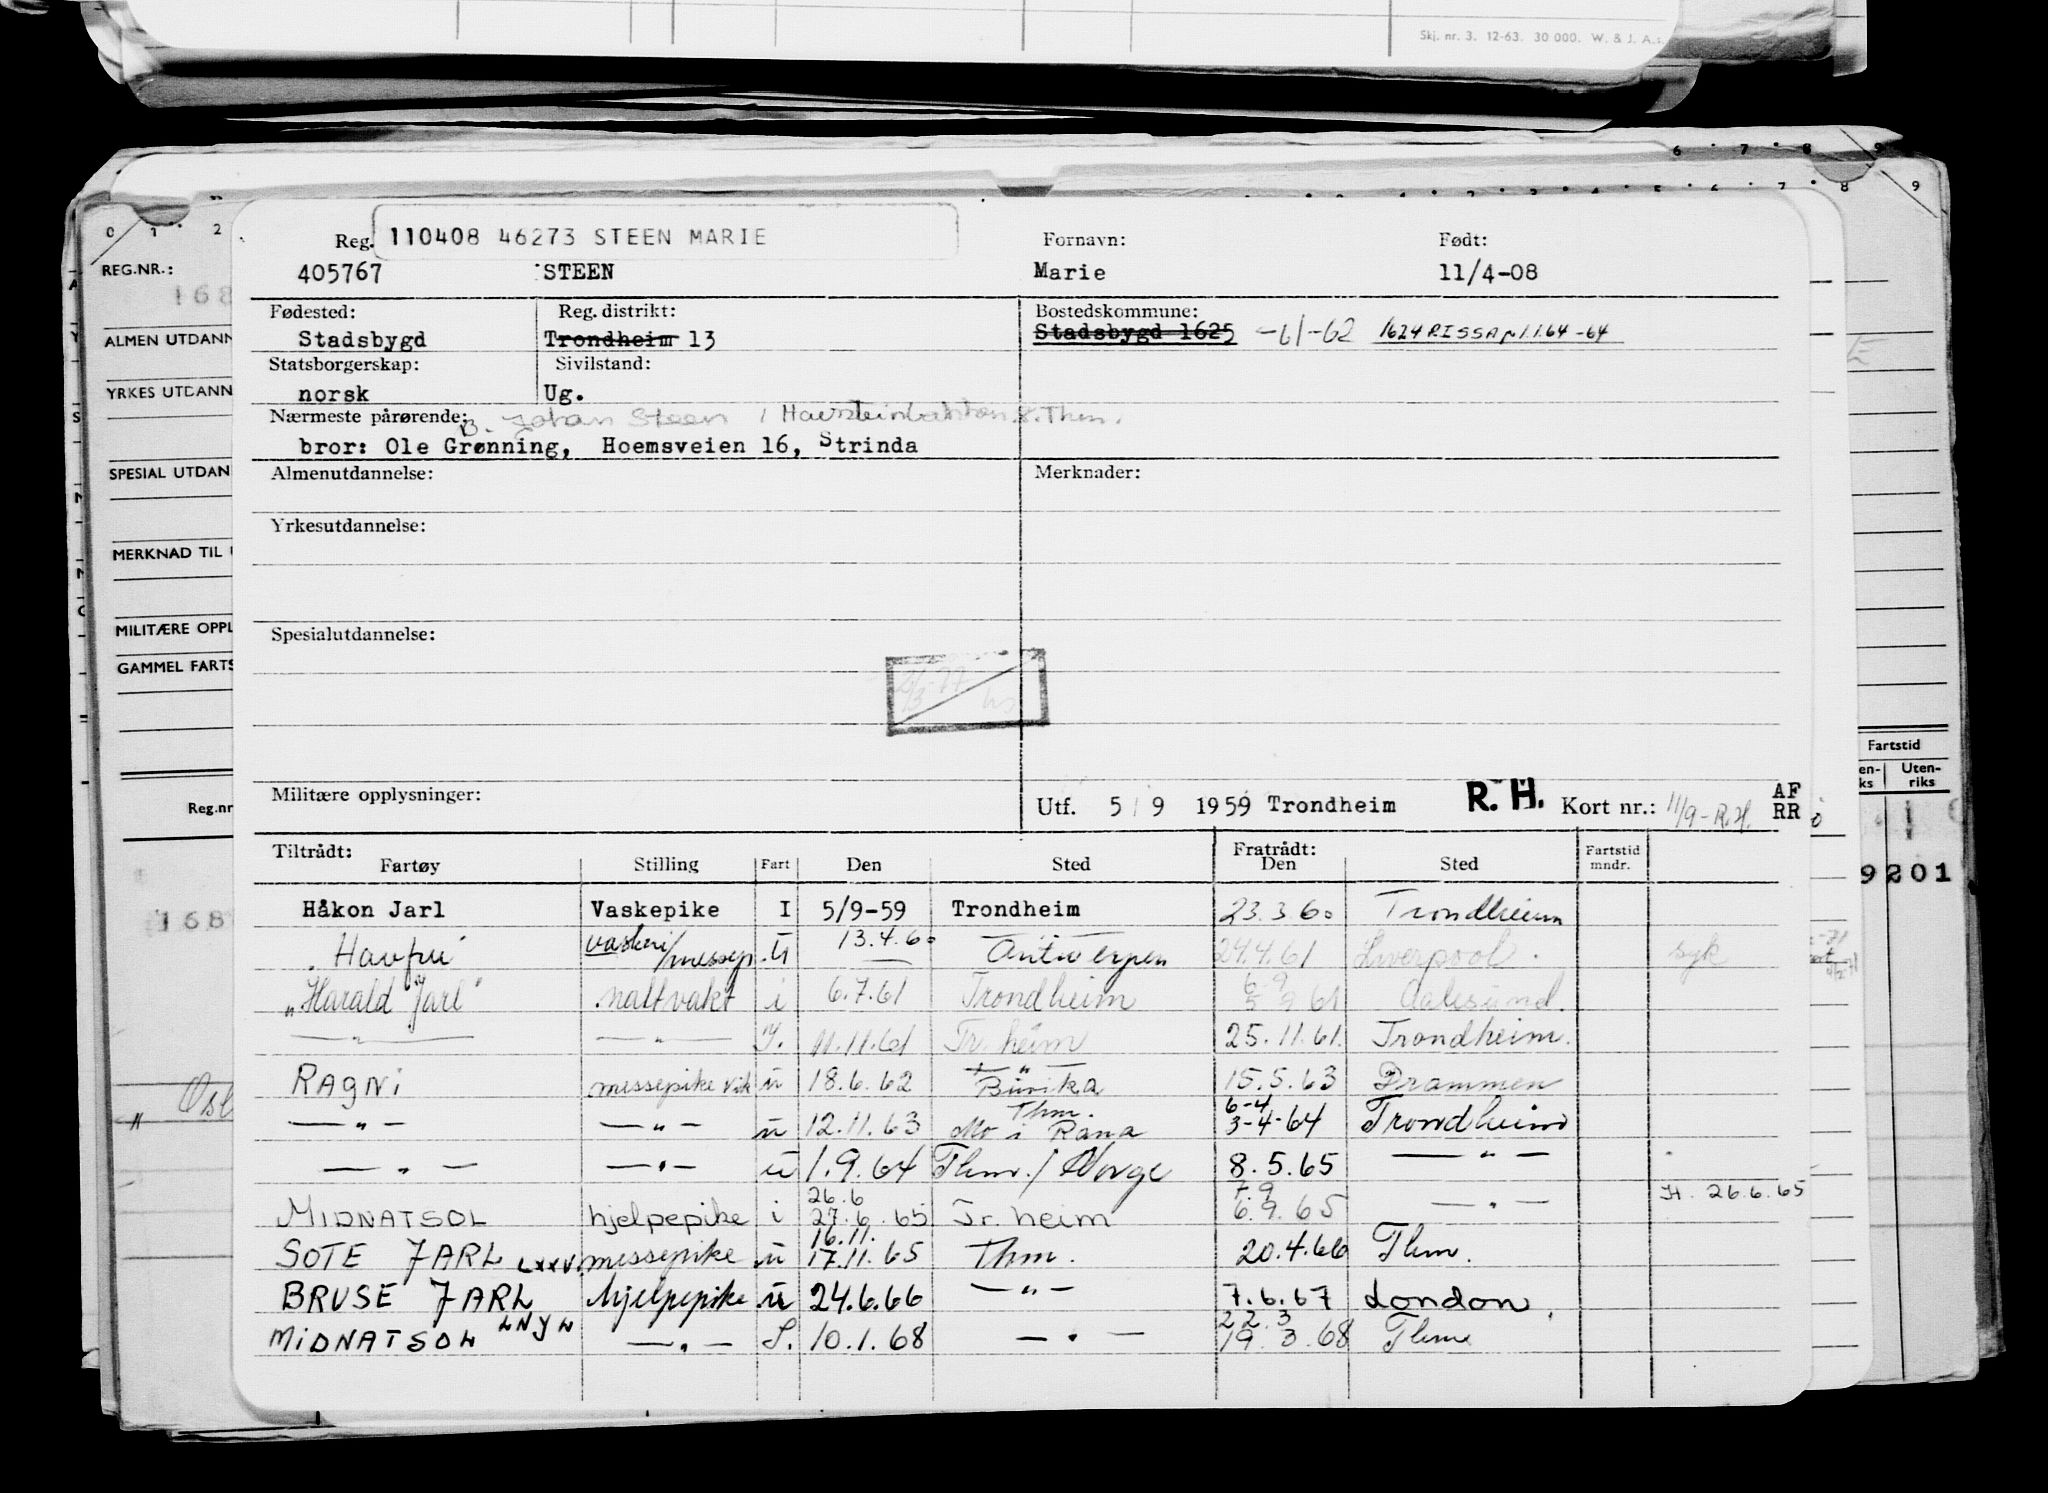 Skj. nr. 3. 12-63. 30 000. W. & J. A.s.
6 7 8 9
0 1 2
REG.NR.:
168
ALMEN UTDANN
YRKES UTDANN
SPESIAL UTDAN
MERKNAD TIL
MILITÆRE OPPL
GAMMEL FARTS
Reg.nr
168
Osl
Reg. 110408 46273 STEEN MARIE Fornavn: Født:
405767 STEEN Marie 11/4-08
Fødested: Reg. distrikt: Bostedskommune:
Stadsbygd Trondheim 13 Stadsbygd 1625 -61-62 1624 RISSA 1.1.64 -64
Statsborgerskap: Sivilstand:
norsk Ug.
Nærmeste pårørende: B. Johan Steen
bror: Ole Grønning, Hoemsveien 16, Strinda
Almenutdannelse: Merknader:
Yrkesutdannelse:
Spesialutdannelse:
Militære opplysninger: Utf. 5/9 1959 Trondheim R. H. Kort nr.: 11/9-R.H. AF RR
Tiltrådt: Fratrådt: Fartstid
Fartøy Stilling Fart Den Sted Den Sted mndr.
Håkon Jarl Vaskepike I 5/9-59 Trondheim 23.3.60 Trondheim
Havfru vaskeri/messep. ü 13.4.60 Antwerpen 24.4.61 Liverpool. syk
"Harald Jarl" nattvakt i 6.7.61 Trondheim 6-9 5 9 61 Aalesund.
— " — — " — I. 11.11.61 Tr. heim 25.11.61. Trondheim.
RAGNi messepike vik ü 18.6.62 15.5.63 Drammen
— " — — " — u 12.11.63 Thm. Mo i Rana 6-4 3-4-64 Trondheim
— " — — " — ü 1.9.64 Thm./Norge 8.5.65 — " —
MIDNATSOL hjelpepike i 26.6 27.6.65 Tr. heim 7.9 6.9.65 — " — H. 26.6.65
SOTE JARL LXXV messepike ü 16.11. 17.11.65 Thm. 20.4.66 Thm.
BRUSE JARL hjelpepike ü 24.6.66 — " — 7.6.67 London.
MiDNATSOL LNJL — " — I. 10.1.68 — " — 22.3 19.3.68 Thm
Fartstid
Uten-
riks
9201